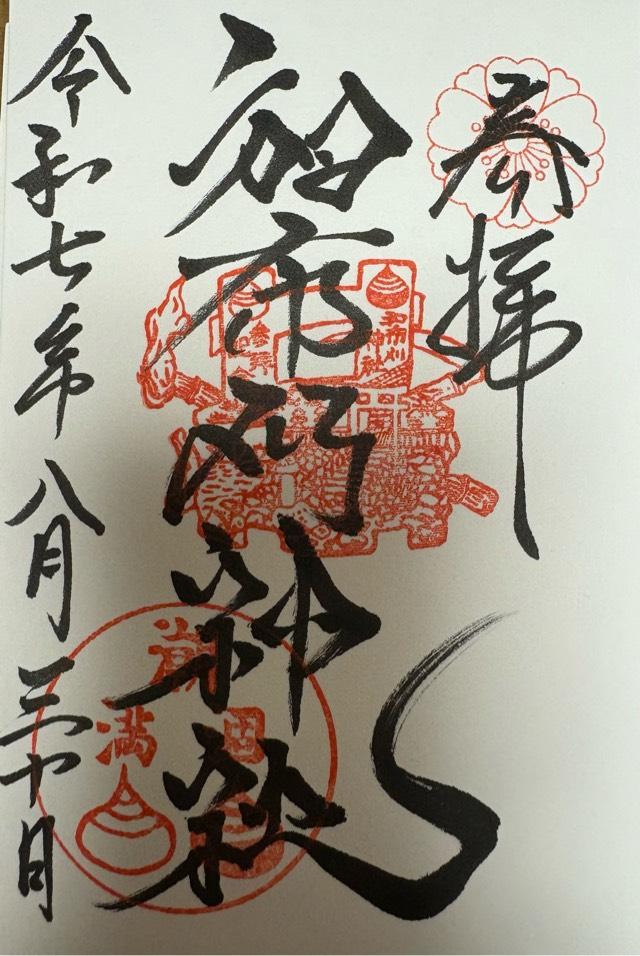 奉拝
和布刈神社
令和七年八月三十日
和布刈
神社
満